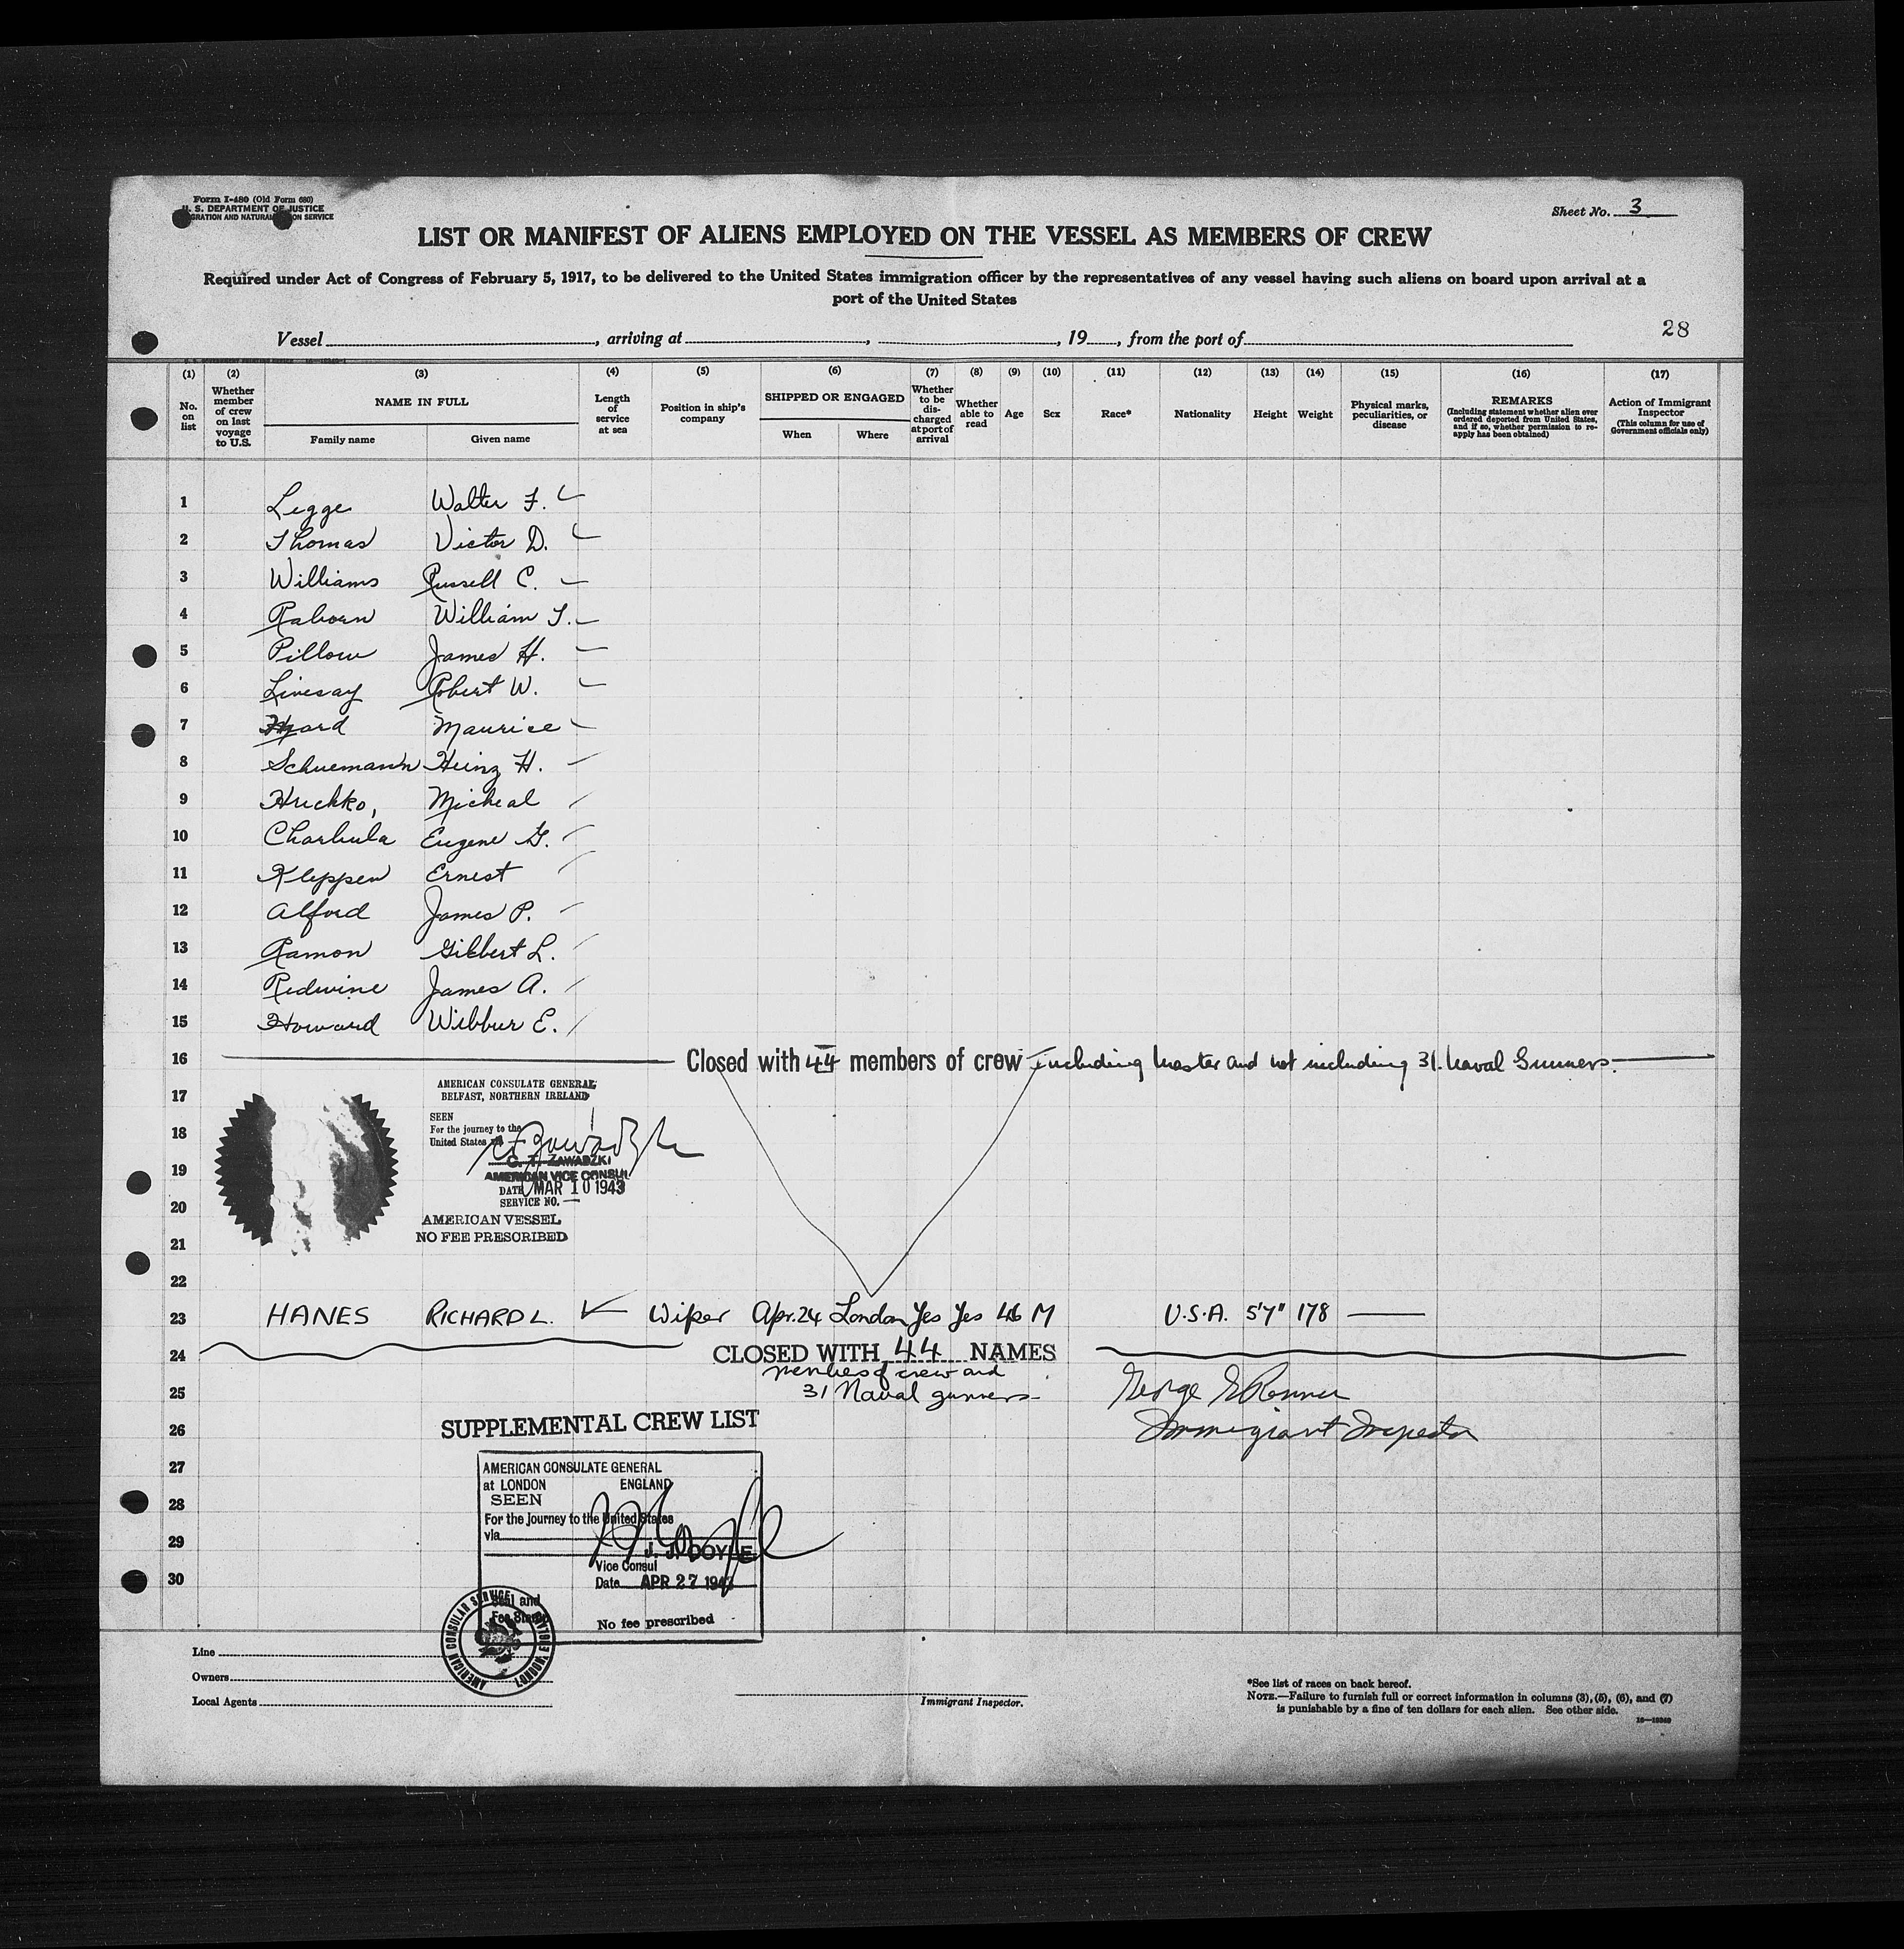 Form I-480 (Old Form 680)
U. S. DEPARTMENT OF JUSTICE
GRATION AND NATURAL ON SERVICE
Sheet No. 3
LIST OR MANIFEST OF ALIENS EMPLOYED ON THE VESSEL AS MEMBERS OF CREW
Required under Act of Congress of February 5, 1917, to be delivered to the United States immigration officer by the representatives of any vessel having such aliens on board upon arrival at a
port of the United States
28
Vessel , arriving at , , 19 , from the port of
(1) (2) (3) (4) (5) (6) (7) (8) (9) (10) (11) (12) (13) (14) (15) (16) (17)
No. on list
Whether member of crew on last voyage to U.S.
NAME IN FULL
Family name Given name
Length of service at sea
Position in ship's company
SHIPPED OR ENGAGED
When Where
Whether to be discharged at port of arrival
Whether able to read
Age
Sex
Race*
Nationality
Height
Weight
Physical marks, peculiarities, or disease
REMARKS
(Including statement whether alien ever ordered deported from United States, and if so, whether permission to re-apply has been obtained)
Action of Immigrant Inspector
(This column for use of Government officials only)
1 Legge Walter F.
2 Thomas Victor D.
3 Williams Russell C.
4 Raborn William T.
5 Pillow James H.
6 Livesay Robert W.
7 Maurice
8 Schuemann Heinz H.
9 Hrichko, Micheal
10 Charbula Eugene G.
11 Kleppen Ernest
12 Alford James P.
13 Ramon Gilbert L.
14 Redwine James A.
15 Howard Wilbur E.
16 Closed with 44 members of crew including Master and not including 31. Naval Gunners.
17
18
19
20
21
22
AMERICAN CONSULATE GENERAL
BELFAST, NORTHERN IRELAND
SEEN
For the journey to the
United States
C. T. ZAWADZKI
AMERICAN VICE CONSUL
DATE MAR 10 1943
SERVICE NO. —
AMERICAN VESSEL
NO FEE PRESCRIBED
23 HANES RICHARD L. Wiper Apr.24 London Yes Yes 46 M U.S.A. 5'7" 178 —
24 CLOSED WITH 44 NAMES
members of crew and
25 31 Naval gunners
George Renner
Immigrant Inspector
26 SUPPLEMENTAL CREW LIST
27
28
29
30
AMERICAN CONSULATE GENERAL
at LONDON ENGLAND
SEEN
For the journey to the United States
via
J. J. DOYLE
Vice Consul
Date APR 27 1943
Seal and
Fee Stamp
No fee prescribed
AMERICAN CONSULAR SERVICE
LONDON ENGLAND
Line
Owners
Local Agents
Immigrant Inspector.
*See list of races on back hereof.
NOTE.—Failure to furnish full or correct information in columns (3), (5), (6), and (7)
is punishable by a fine of ten dollars for each alien. See other side.